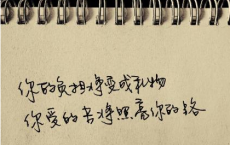 你的负担将变成礼物
你受的苦将照亮你的路